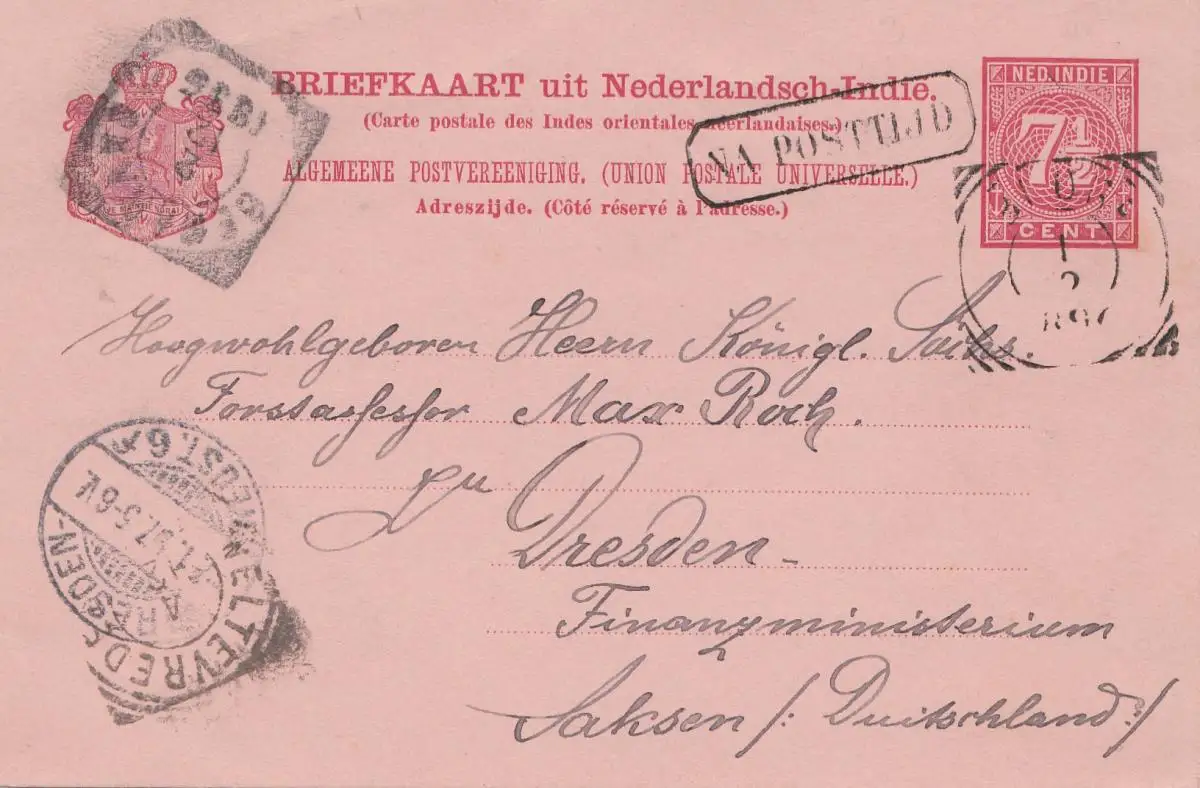 BRIEFKAART uit Nederlandsch-Indie.
(Carte postale des Indes orientales neerlandaises.)
ALGEMEENE POSTVEREENIGING. (UNION POSTALE UNIVERSELLE.)
Adreszijde. (Côté réservé à l'adresse.)
NA POSTTIJD
NED. INDIE
7½
CENT
JE MAINTIENDRAI
Hoogwohlgeboren Herrn Königl. Sächs.
Forstassessor Max Roch.
zu
Dresden-
Finanzministerium
Saksen /: Duitschland :/
DRESDEN-
NEUST. 6
5-6V.
WELTEVREDEN